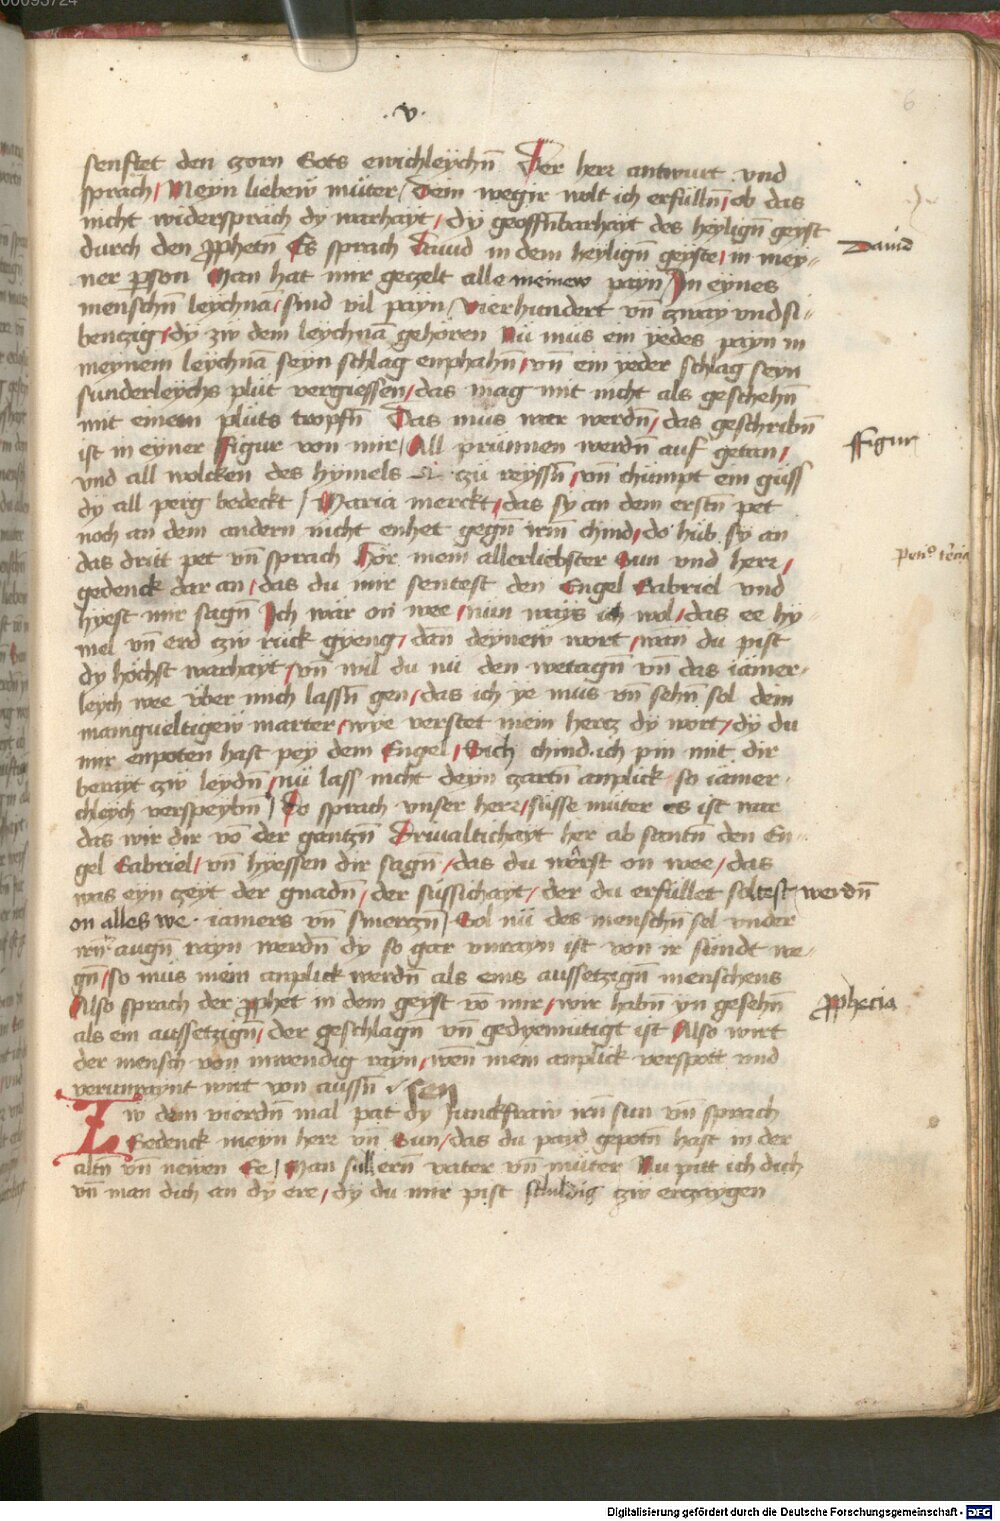 .v.
senftet den zorn Gots ewichleychn̄ Der herr antwurt vnd
sprach / Meyn liebew můter / Dein wegir wolt ich erfülln̄ / ob das
nicht widersprach dy warhayt / dy geoffn̄barhayt des heylign̄ geyst
durch den ꝓphetn̄ Es sprach Dauid in dem heylign̄ geyste / in mey=
ner ꝑson Man hat mir geczelt alle meinew payn / In eynes
menschn̄ leychnā / sind vil payn / Vierhundert vn̄ zway vnd si=
benczig / dy zw dem leychnā gehören Nü mus ein yedes payn in
meynem leychnā seyn schlag enphahn̄ / vn̄ ein yeder schlag seyn
sunderleychs plüt vergiessen / das mag mit nicht als geschehn̄
mit einem plüts tropfn̄ Das mus war werdn̄ / das geschribn̄
ist in eyner ffigur von mir / All prunnen werdn̄ auf getan /
vnd all wolcken des hymels zü reyssn̄ / vn̄ chümpt ein güss
dy all perg bedeckt / Maria merckt / das sy an dem erstn̄ pet
noch an dem andern nicht enhet gegn̄ irm̄ chind / do hüb sy an
das dritt pet vn̄ sprach Hör mein allerliebster Sun vnd herr /
gedenck dar an / das du mir sentest den Engel Gabriel vnd
hyest mir sagn̄ Ich wär on wee / nün ways ich wol / das ee hy=
mel vn̄ erd zw rück gyeng / dan̄ deynew wort / wan du pist
dy höchst warhayt / vn̄ wil du nü den wetagn̄ vn̄ das iamer=
leych wee vber mich lassn̄ gen / das ich ye mus vn̄ sehn̄ sol dein
manigueltigew marter / wye verstet mein hercz dy wort / dy du
mir enpoten hast pey dem Engel / Sich chind ich pin mit dir
berayt zw leydn̄ / nü lass nicht deyn zartn̄ anplick so iamer=
chleych verspeybn̄ / Do sprach vnser herr / süsse müter es ist war
das wir dir vō der gantzn̄ Driualtichayt her ab santn̄ den En=
gel Gabriel / vn̄ hyessen dir sagn̄ / das du wërst on wee / das
was eyn zeyt der gnadn̄ / der süssichayt / der du erfüllet soltest werdn̄
on alles we iamers vn̄ smerczn̄ / Sol nü des menschn̄ sel vnder
irn̄ augn̄ rayn werdn̄ dy so gar vnrayn ist von ir sündt we=
gn̄ / so mus mein anplick werdn̄ als eins aussetzign̄ menschens
Also sprach der ꝓphet in dem geyst vō mir / wir habn̄ yn gesehn̄
als ein aussetzign̄ / der geschlagn̄ vn̄ gedyemütigt ist Also wirt
der mensch von inwendig rayn / wen̄ mein anplick verspott vnd
verunraynt wirt von aussn̄
Zw dem vierdn̄ mal pat dy Junckfraw irn̄ sun vn̄ sprach
Gedenck meyn herr vn̄ Sun / das du payd gepotn̄ hast in der
altn̄ vn̄ newen Ee / Man sull ern̄ vater vn̄ müter Nu pitt ich dich
vn̄ man dich an dy ere / dy du mir pist schuldig zw erczaygen
Dauid
ffigur
ꝓphecia
6
Digitalisierung gefördert durch die Deutsche Forschungsgemeinschaft - DFG